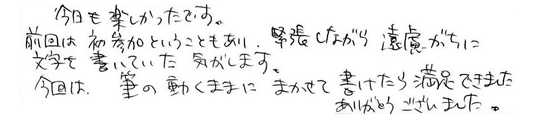 今日も楽しかったです。
前回は初参加ということもあり、緊張しながら遠慮がちに
文字を書いていた気がします。
今回は、筆の動くままにまかせて書けたら満足できました
ありがとうございました。